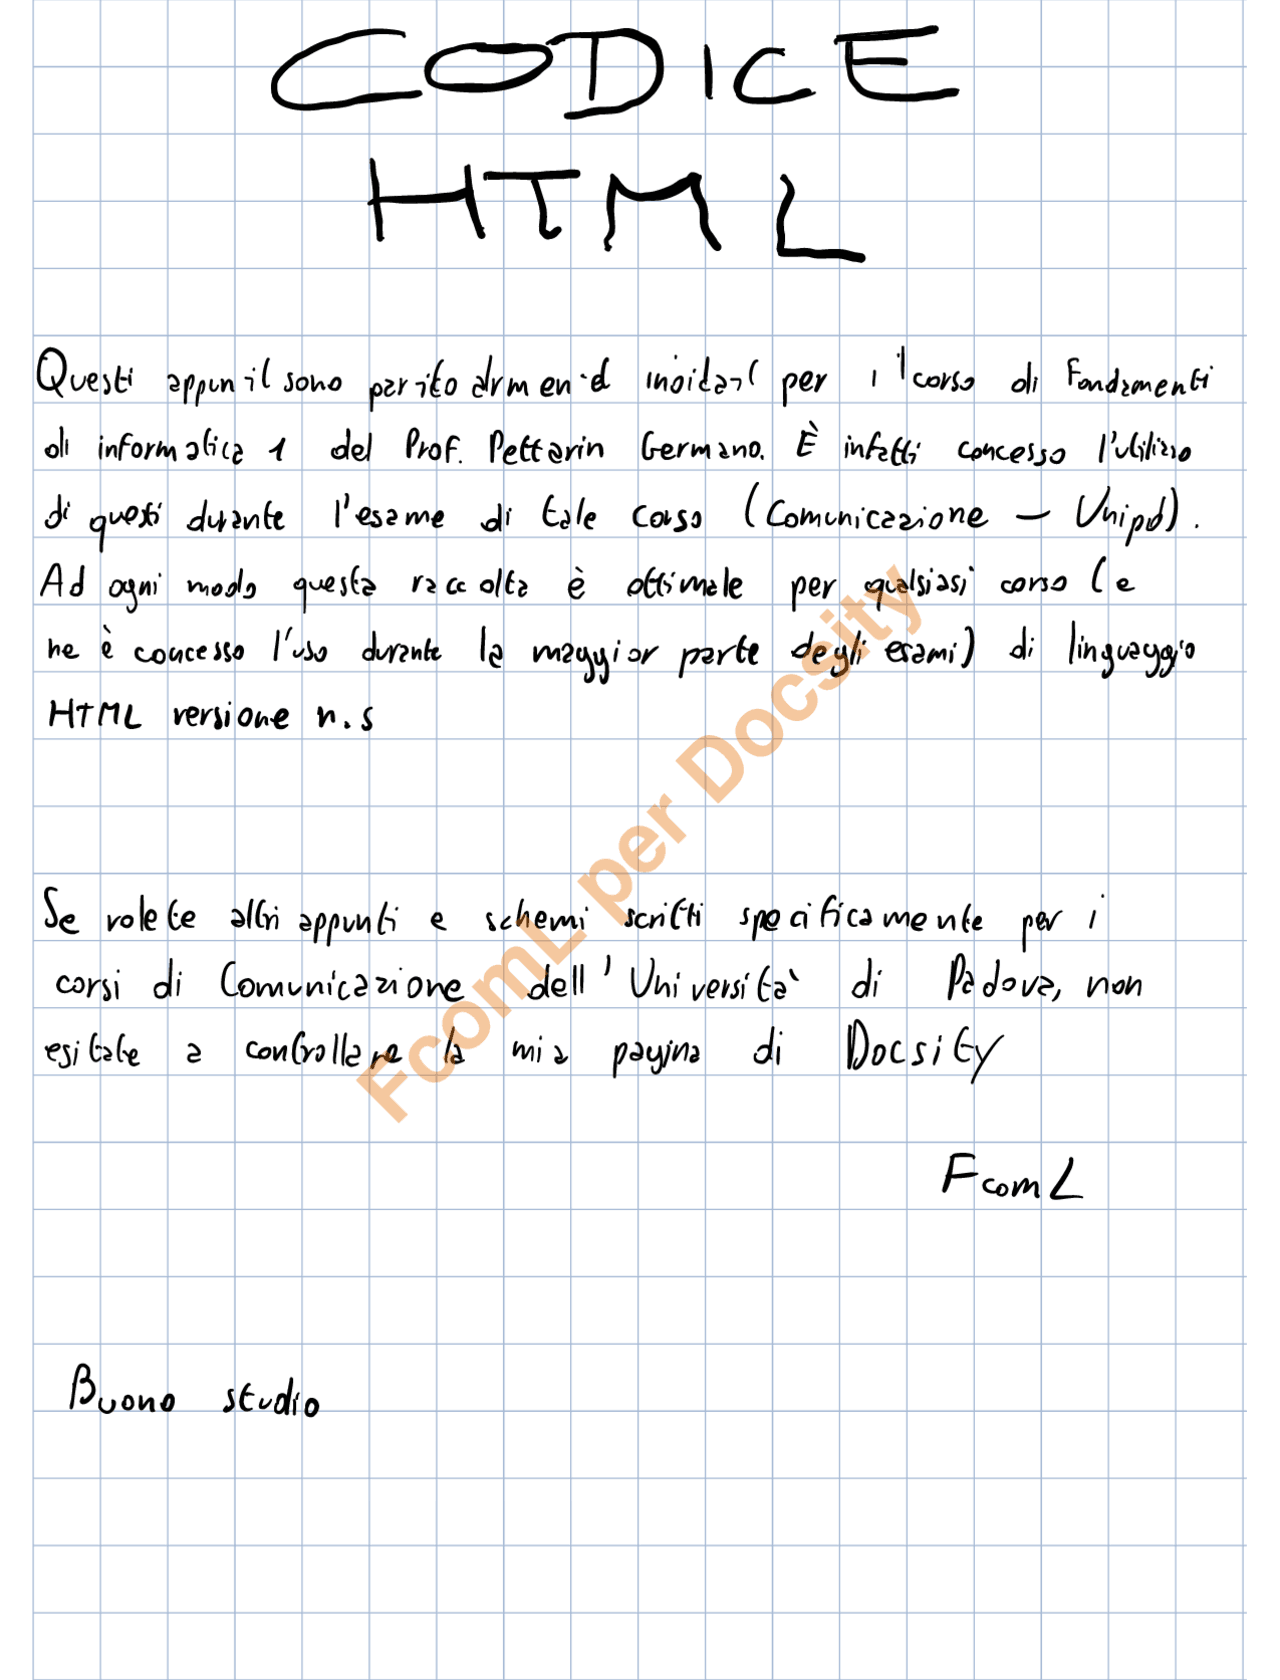 CODICE
HTML
Questi appunti sono per il corso di Fondamenti
di informatica 1 del Prof. Pettarin Germano. È infatti concesso l'utilizzo
di questi durante l'esame di tale corso (Comunicazione - Unipd).
Ad ogni modo questa raccolta è ottimale per qualsiasi corso (e
ne è concesso l'uso durante la maggior parte degli esami) di linguaggio
HTML versione n.5
Se volete altri appunti e schemi scritti specificamente per i
corsi di Comunicazione dell'Università di Padova, non
esitate a controllare la mia pagina di Docsity
FcomL
Buono studio
FcomL per Docsity